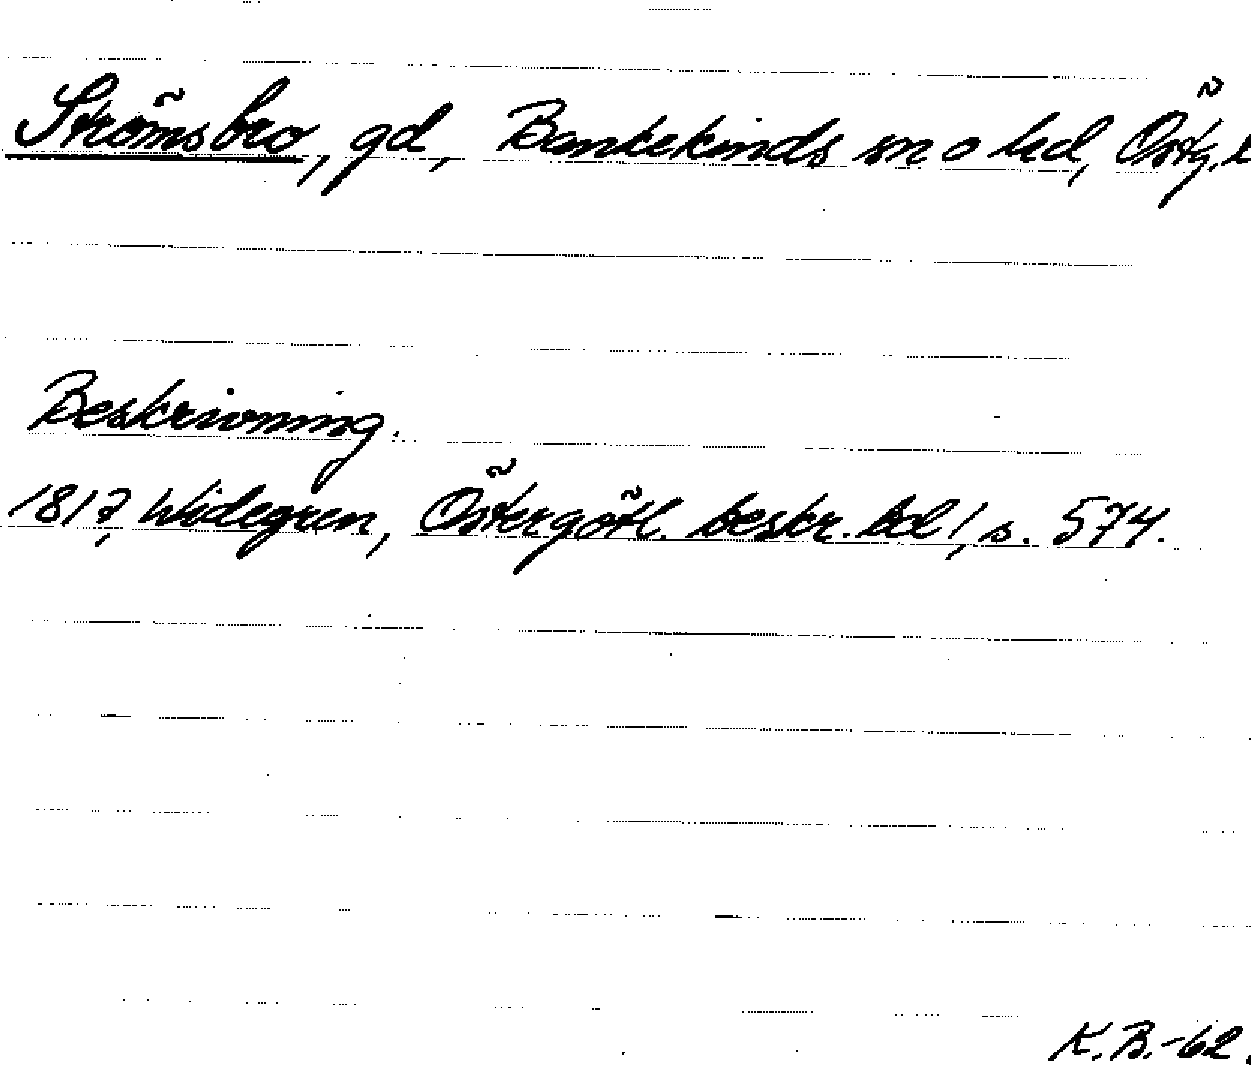 Strömsbro, gd, Bankekinds sn o hd, Östg. l
Beskrivning.
1817, Widegren, Östergötl. beskr. bd 1, s. 574.
K.B.-62.